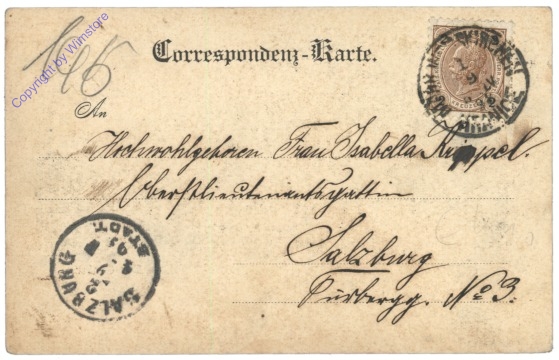 146
Copyright by Wimstore
Correspondenz-Karte.
An
Hochwohlgeboren Frau Isabella Krippel.
Oberstlieutenantsgattin
Salzburg
No 3.
SALZBURG
STADT.